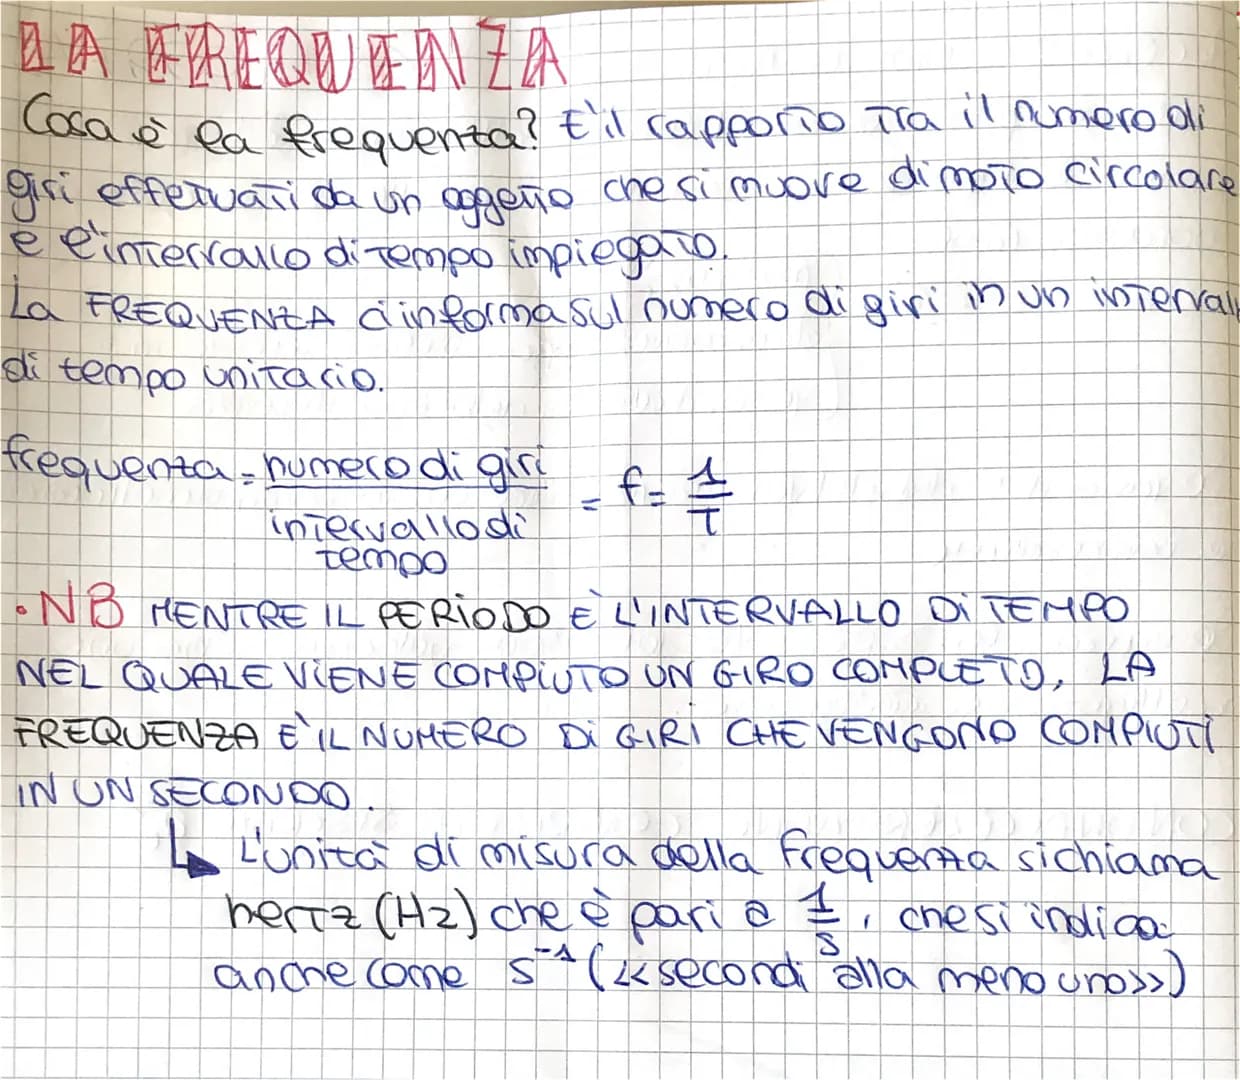 LA FREQUENZA
Cosa è la frequenza? E'il rapporto tra il numero di
giri effettuati da un oggetto che si muove di moto circolare
e l'intervallo di tempo impiegato.
La FREQUENZA ci informa sul numero di giri in un interval
di tempo unitario.
frequenza = numero di giri / intervallo di tempo = f = 1/T
• NB MENTRE IL PERIODO È L'INTERVALLO DI TEMPO
NEL QUALE VIENE COMPIUTO UN GIRO COMPLETO, LA
FREQUENZA E' IL NUMERO DI GIRI CHE VENGONO COMPIUTI
IN UN SECONDO.
↳ L'unità di misura della frequenza si chiama
hertz (Hz) che è pari a 1/s, che si indica
anche come s⁻¹ (<<secondi alla meno uno>>)